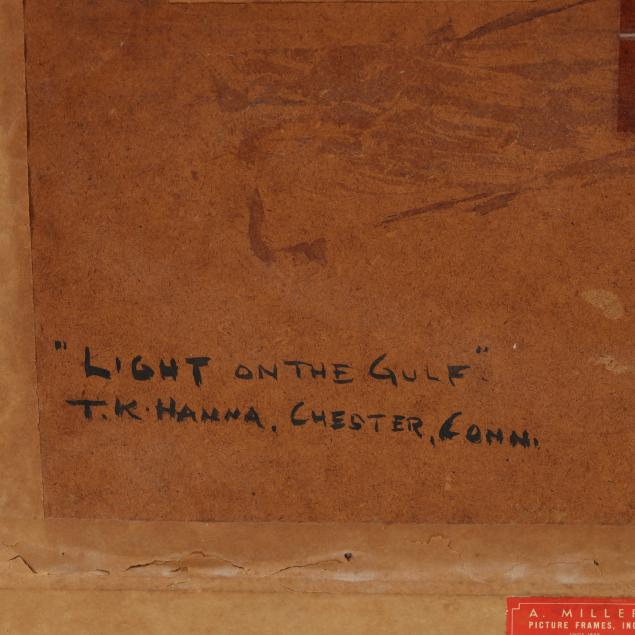 "LIGHT ON THE GULF".
T.K. HANNA, CHESTER, CONN.
A. MILLER
PICTURE FRAMES, INC